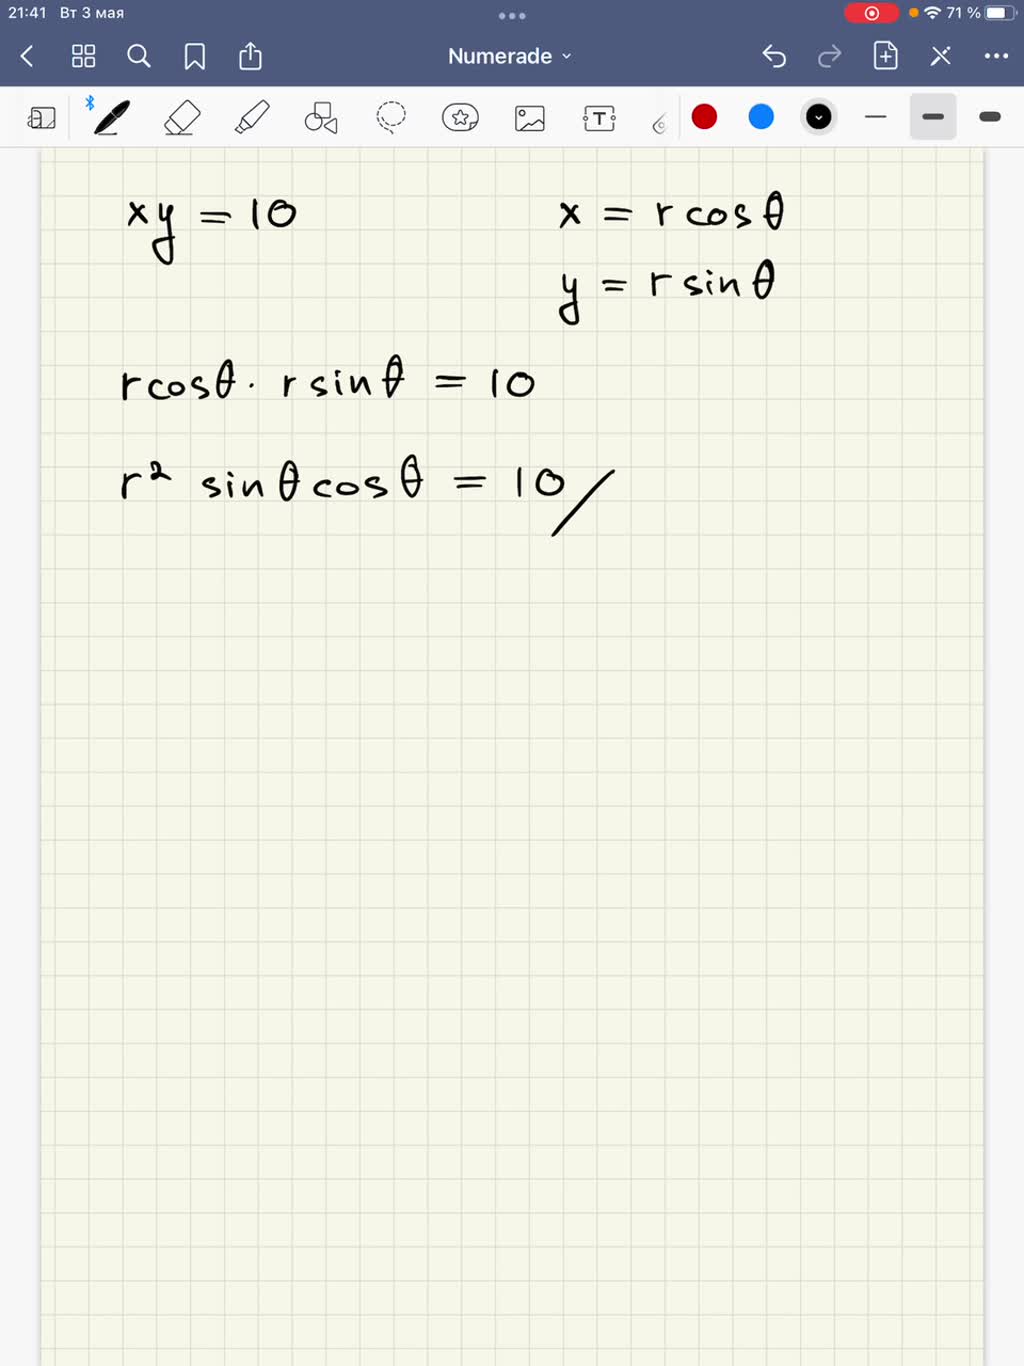 21:41 Вт 3 мая 71 %
Numerade
T
xy = 10
x = r cos θ
y = r sin θ
r cos θ · r sin θ = 10
r² sin θ cos θ = 10 /